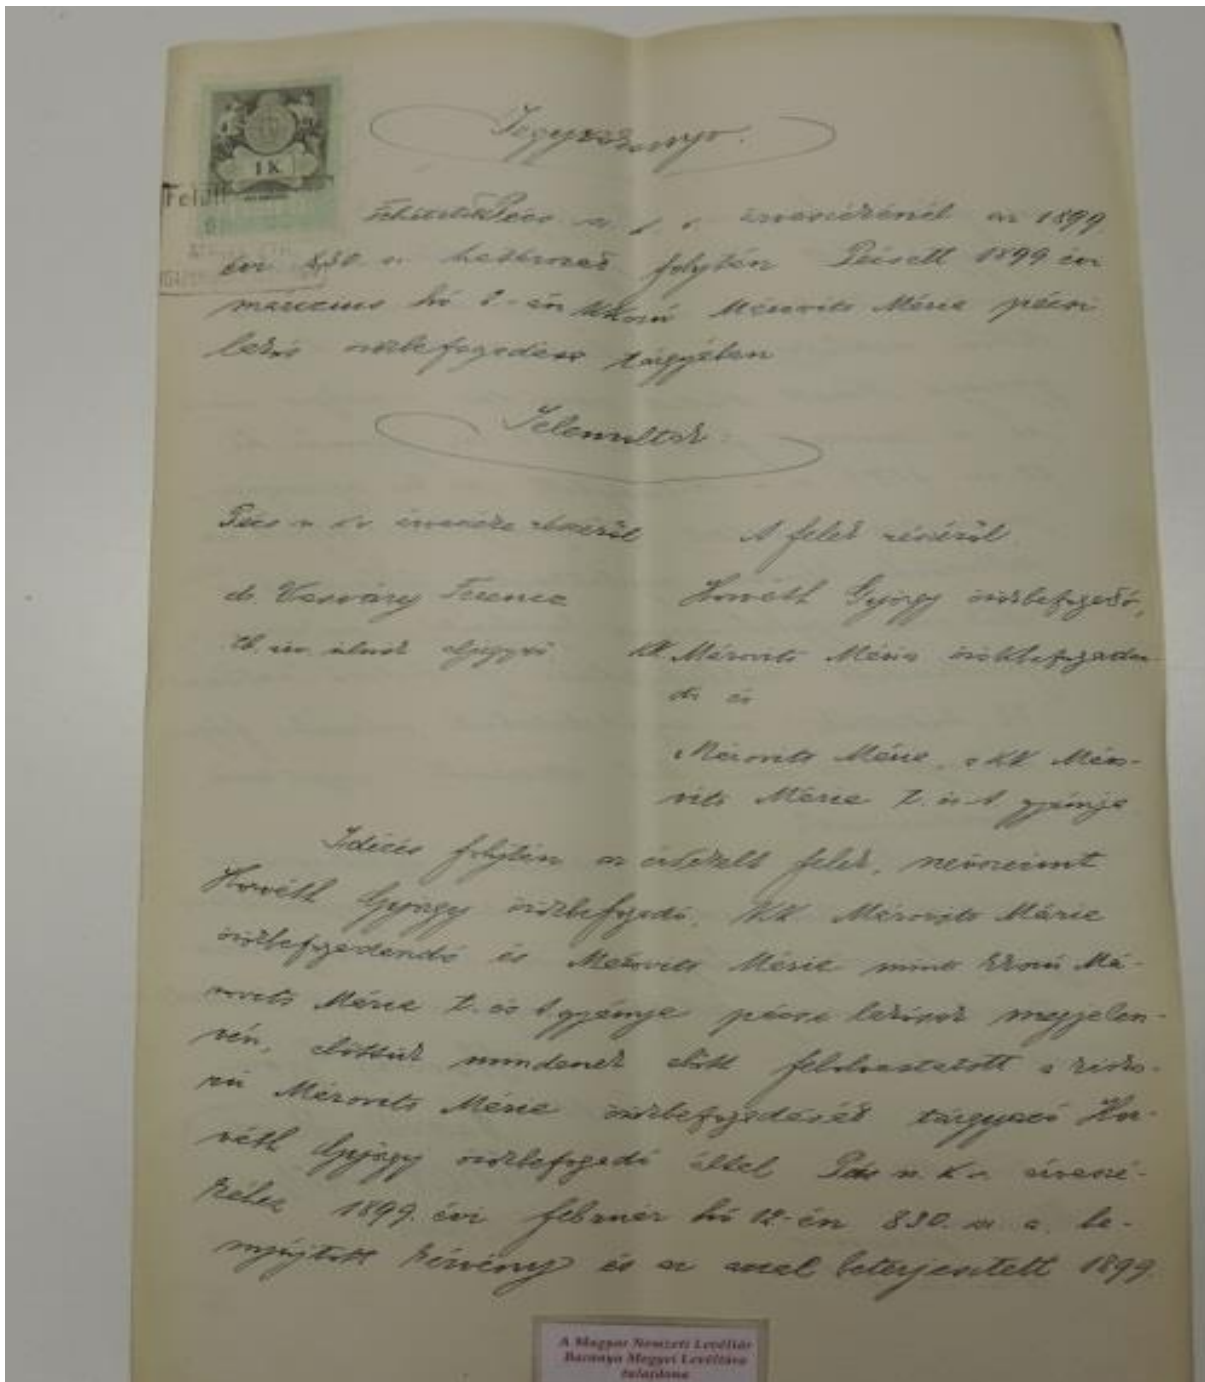 1 K
Felül
Jegyzőkönyv.
Felvétetett Pécs sz. k. v. árvaszékénél az 1899
évi 830. sz. határozat folytán Pécsett 1899 évi
márczius hó 8-án kkorú Mérovits Mária pécsi
lakós örökbefogadása tárgyában
Jelenvoltak:
Pécs sz. k. v. árvaszéke részéről
A felek részéről
dr. Vasváry Ferencz
Horváth György örökbefogadó,
tb. árv. ülnök aljegyző
kk. Mérovits Mária örökbefogadan-
dó és
Mérovits Mária, a kk Méro-
vits Mária t. és t. gyámja
Idézés folytán az érdekelt felek, névszerint
Horváth György örökbefogadó, kk. Mérovits Mária
örökbefogadandó és Mérovits Mária mint kkorú Mé-
rovits Mária t. és t. gyámja pécsi lakósok megjelen-
vén, előttük mindenek előtt felolvastatott a kisko-
rú Mérovits Mária örökbefogadását tárgyazó Hor-
váth György örökbefogadó által Pécs sz. k. v. árvaszé-
kéhez 1899. évi február hó 12-én 830. sz. a. be-
nyújtott kérvény és az azzal beterjesztett 1899.
A Magyar Nemzeti Levéltár
Baranya Megyei Levéltára
tulajdona